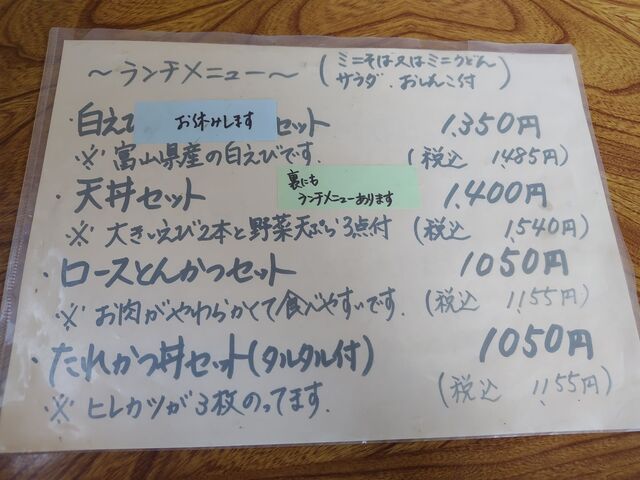 ～ランチメニュー～ (ミニそば又はミニうどん
サラダ、おしんこ付)
・白えび お休みします セット 1,350円
※ 富山県産の白えびです. (税込 1,485円)
・天丼セット 1,400円
裏にも
ランチメニューあります
※ 大きいえび2本と野菜天ぷら3点付 (税込 1,540円)
・ロースとんかつセット 1050円
※ お肉がやわらかくて食べやすいです. (税込 1,155円)
・たれかつ丼セット(タルタル付) 1050円
※ ヒレカツが3枚のってます. (税込 1,155円)